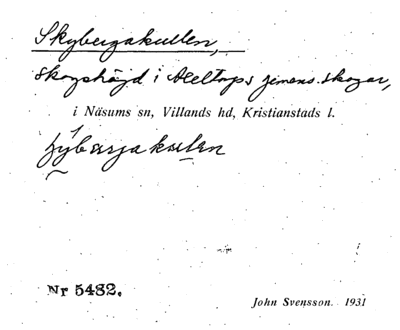 Skybergakullen,
skogshöjd i Axeltorps gemens. skogar,
i Näsums sn, Villands hd, Kristianstads l.
Nr 5482.
John Svensson. 1931